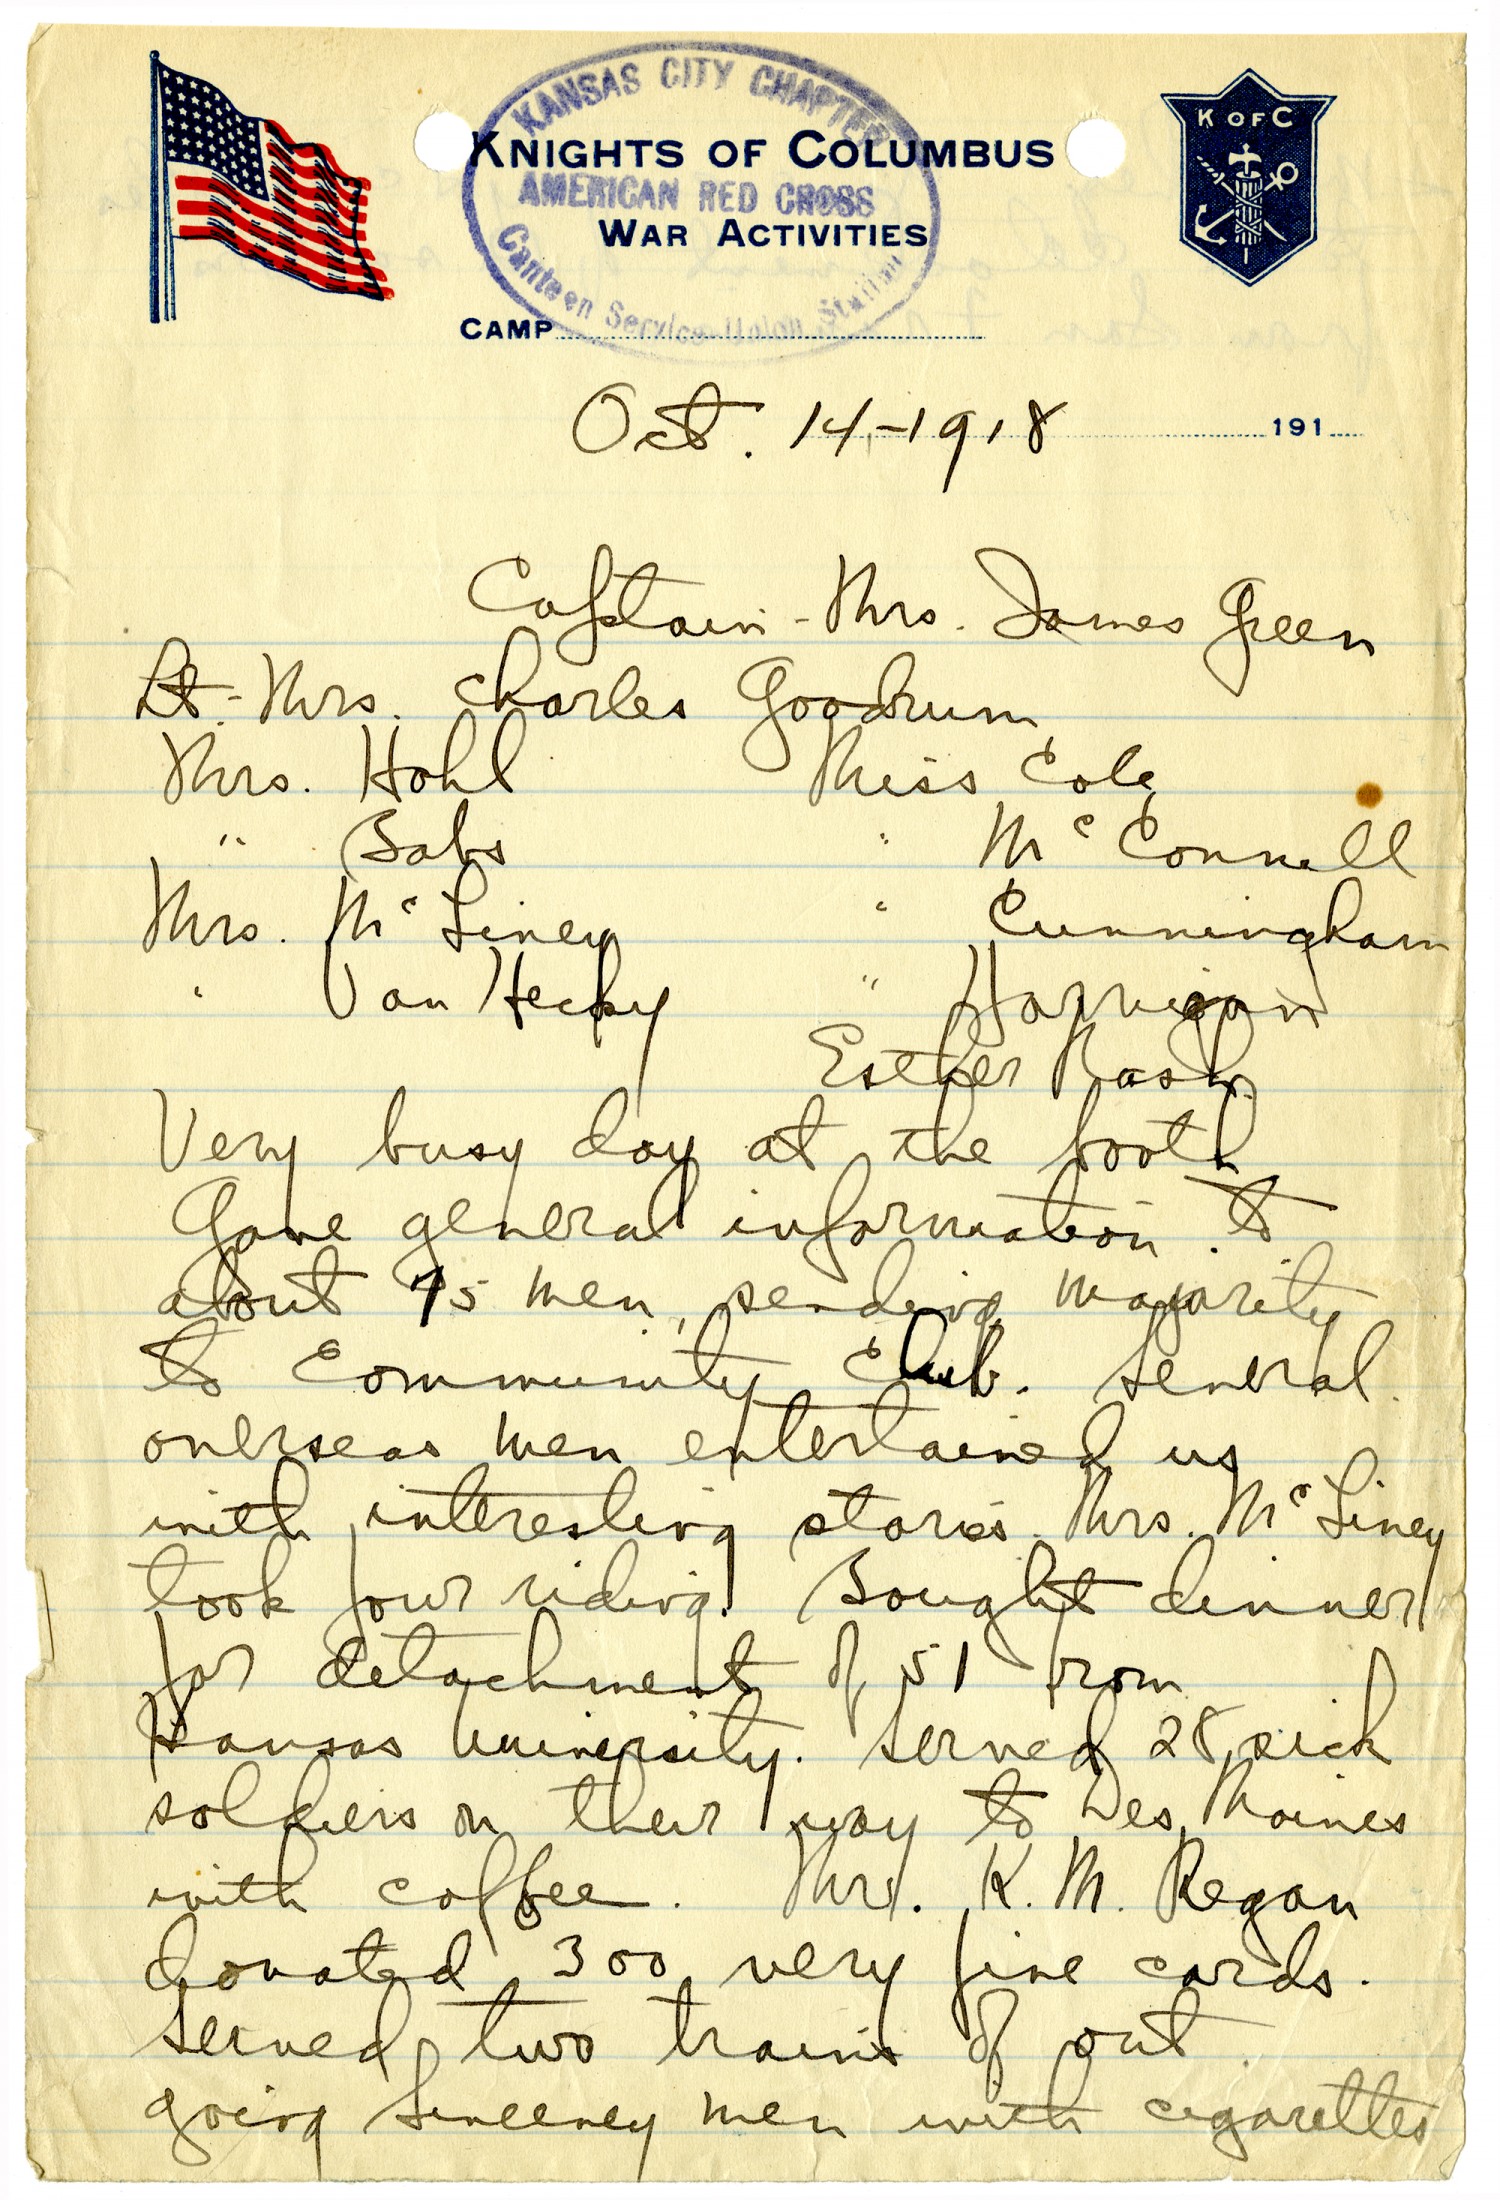 KANSAS CITY CHAPTER
K OF C
KNIGHTS OF COLUMBUS
AMERICAN RED CROSS
WAR ACTIVITIES
Canteen Service-Union Station
CAMP
Oct. 14-1918 191
Captain - Mrs. James Green
Lt.- Mrs. Charles Goodrum
Mrs. Hohl Miss Cole
" Babs " McConnell
Mrs. McLiney " Cunningham
" Van Hecky " Harrigan
Esther Nash
Very busy day at the booth
Gave general information to
about 75 men, sending majority
to Community Club. Several
overseas men entertained us
with interesting stories. Mrs. McLiney
took four riding. Bought dinner
for detachment of 51 from
Kansas University. Served 28 sick
soldiers on their way to Des Moines
with coffee. Mrs. K. M. Regan
donated 300 very fine cards.
Served two trains of out
going Sweeney men with cigarettes